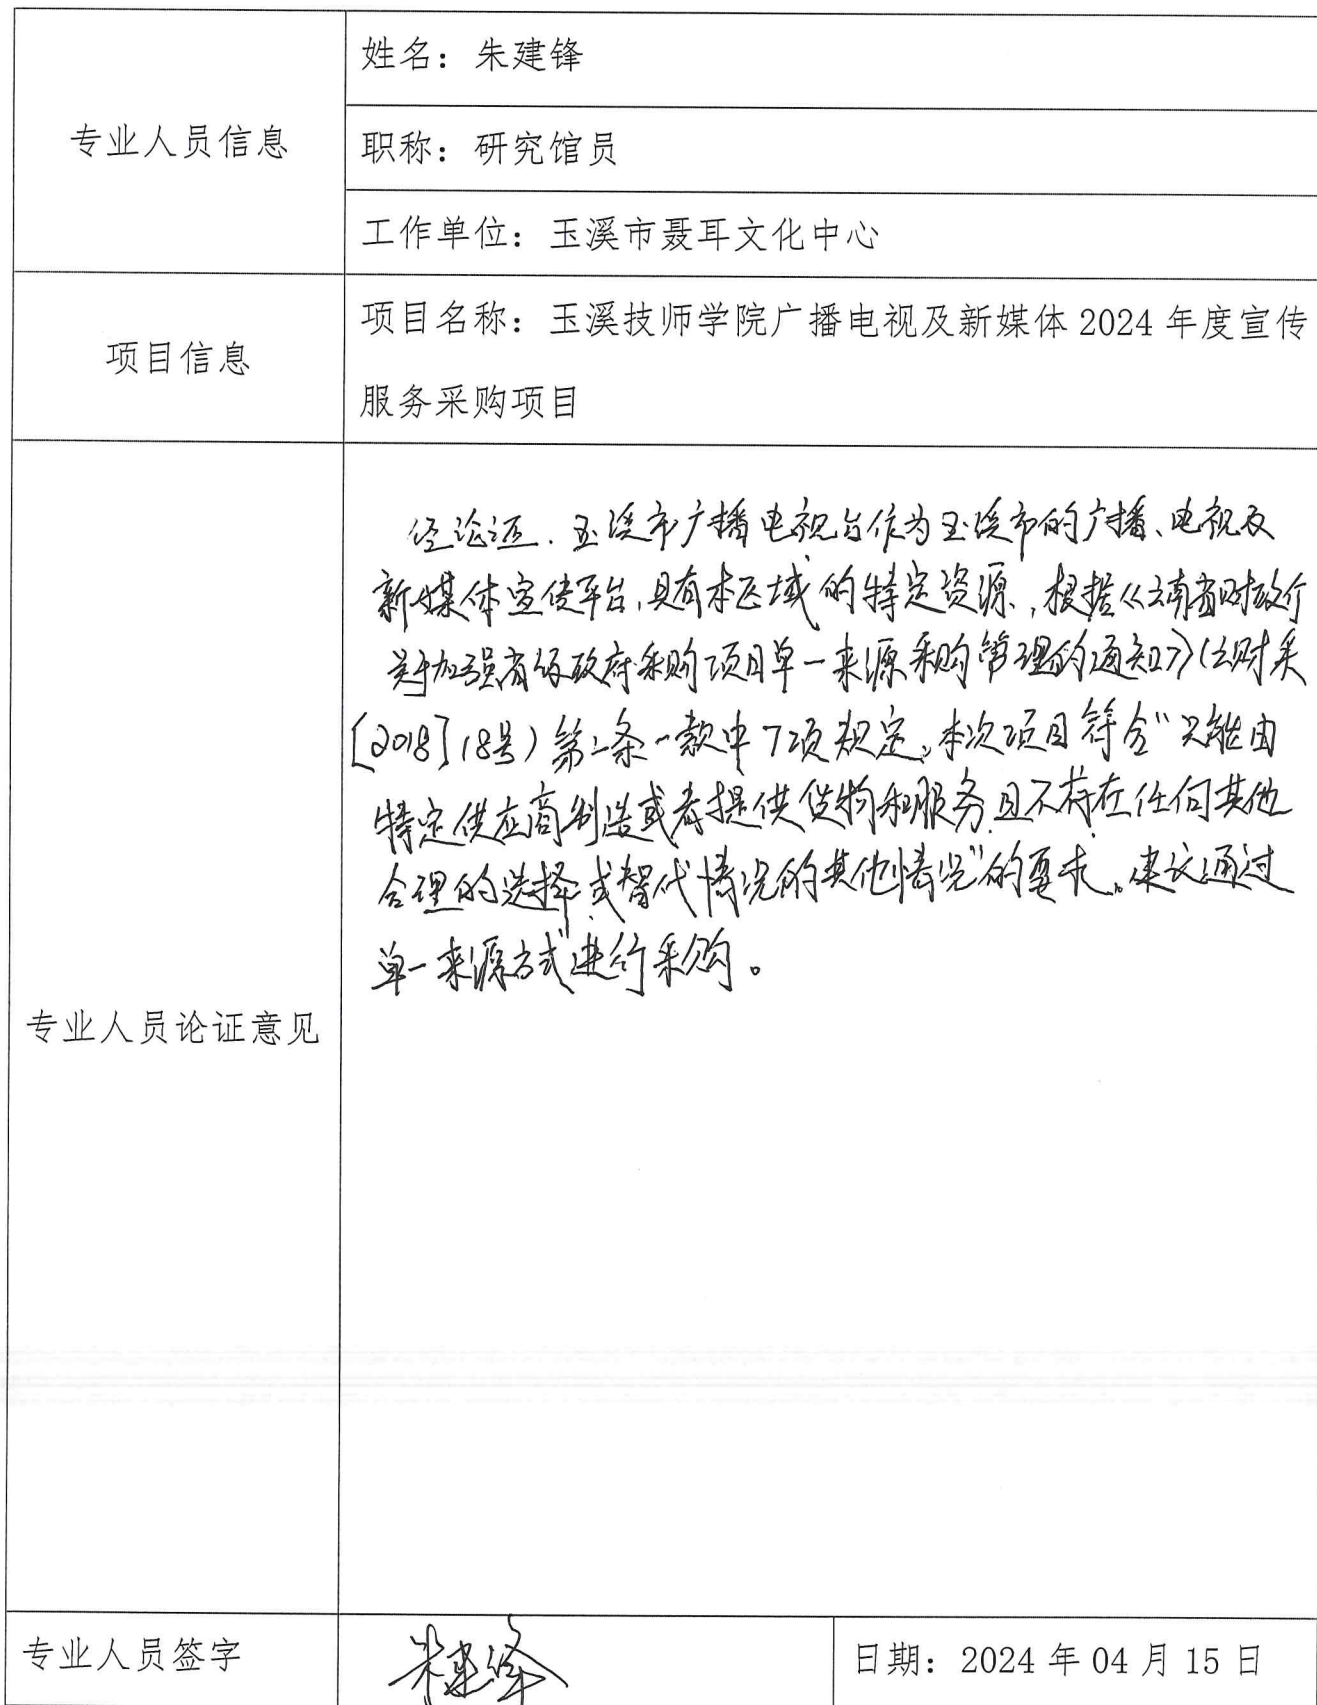 姓名：朱建锋
专业人员信息
职称：研究馆员
工作单位：玉溪市聂耳文化中心
项目信息
项目名称：玉溪技师学院广播电视及新媒体 2024 年度宣传
服务采购项目
专业人员论证意见
经论证，玉溪市广播电视台作为玉溪市的广播、电视及
新媒体宣传平台，具有本区域的特定资源，根据《云南省财政厅
关于加强省级政府采购项目单一来源采购管理的通知》（云财采
〔2018〕18号）第二条一款中7项规定，本次项目符合“只能由
特定供应商制造或者提供货物和服务且不存在任何其他
合理的选择或替代情况的其他情况”的要求。建议通过
单一来源方式进行采购。
专业人员签字
朱建锋
日期：2024 年 04 月 15 日